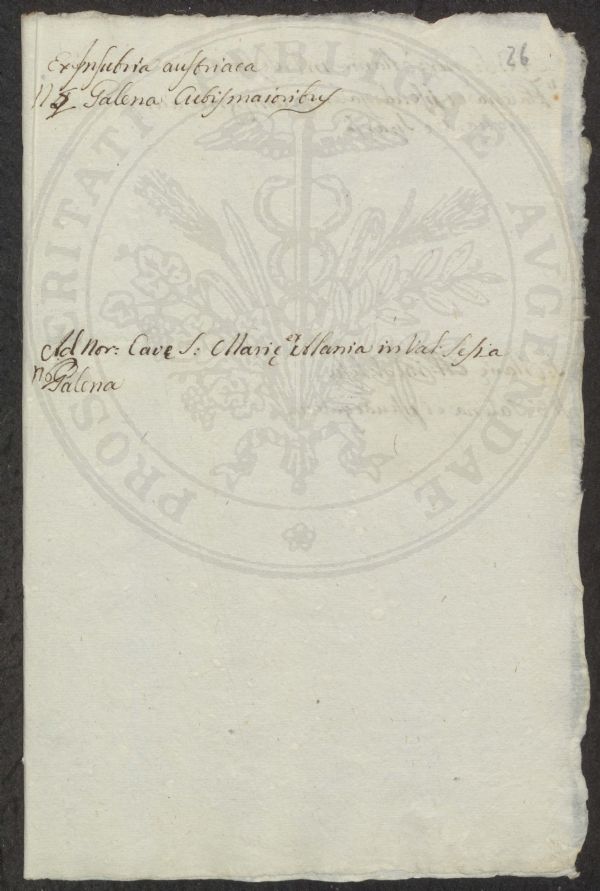 26
Ex Insubria austriaca
Galena Cubis maioribus
Ad Nor: Cave S: Marię
in Val Sesia
No
Galena
PROSPERITATI PUBLICAE AVGENDAE